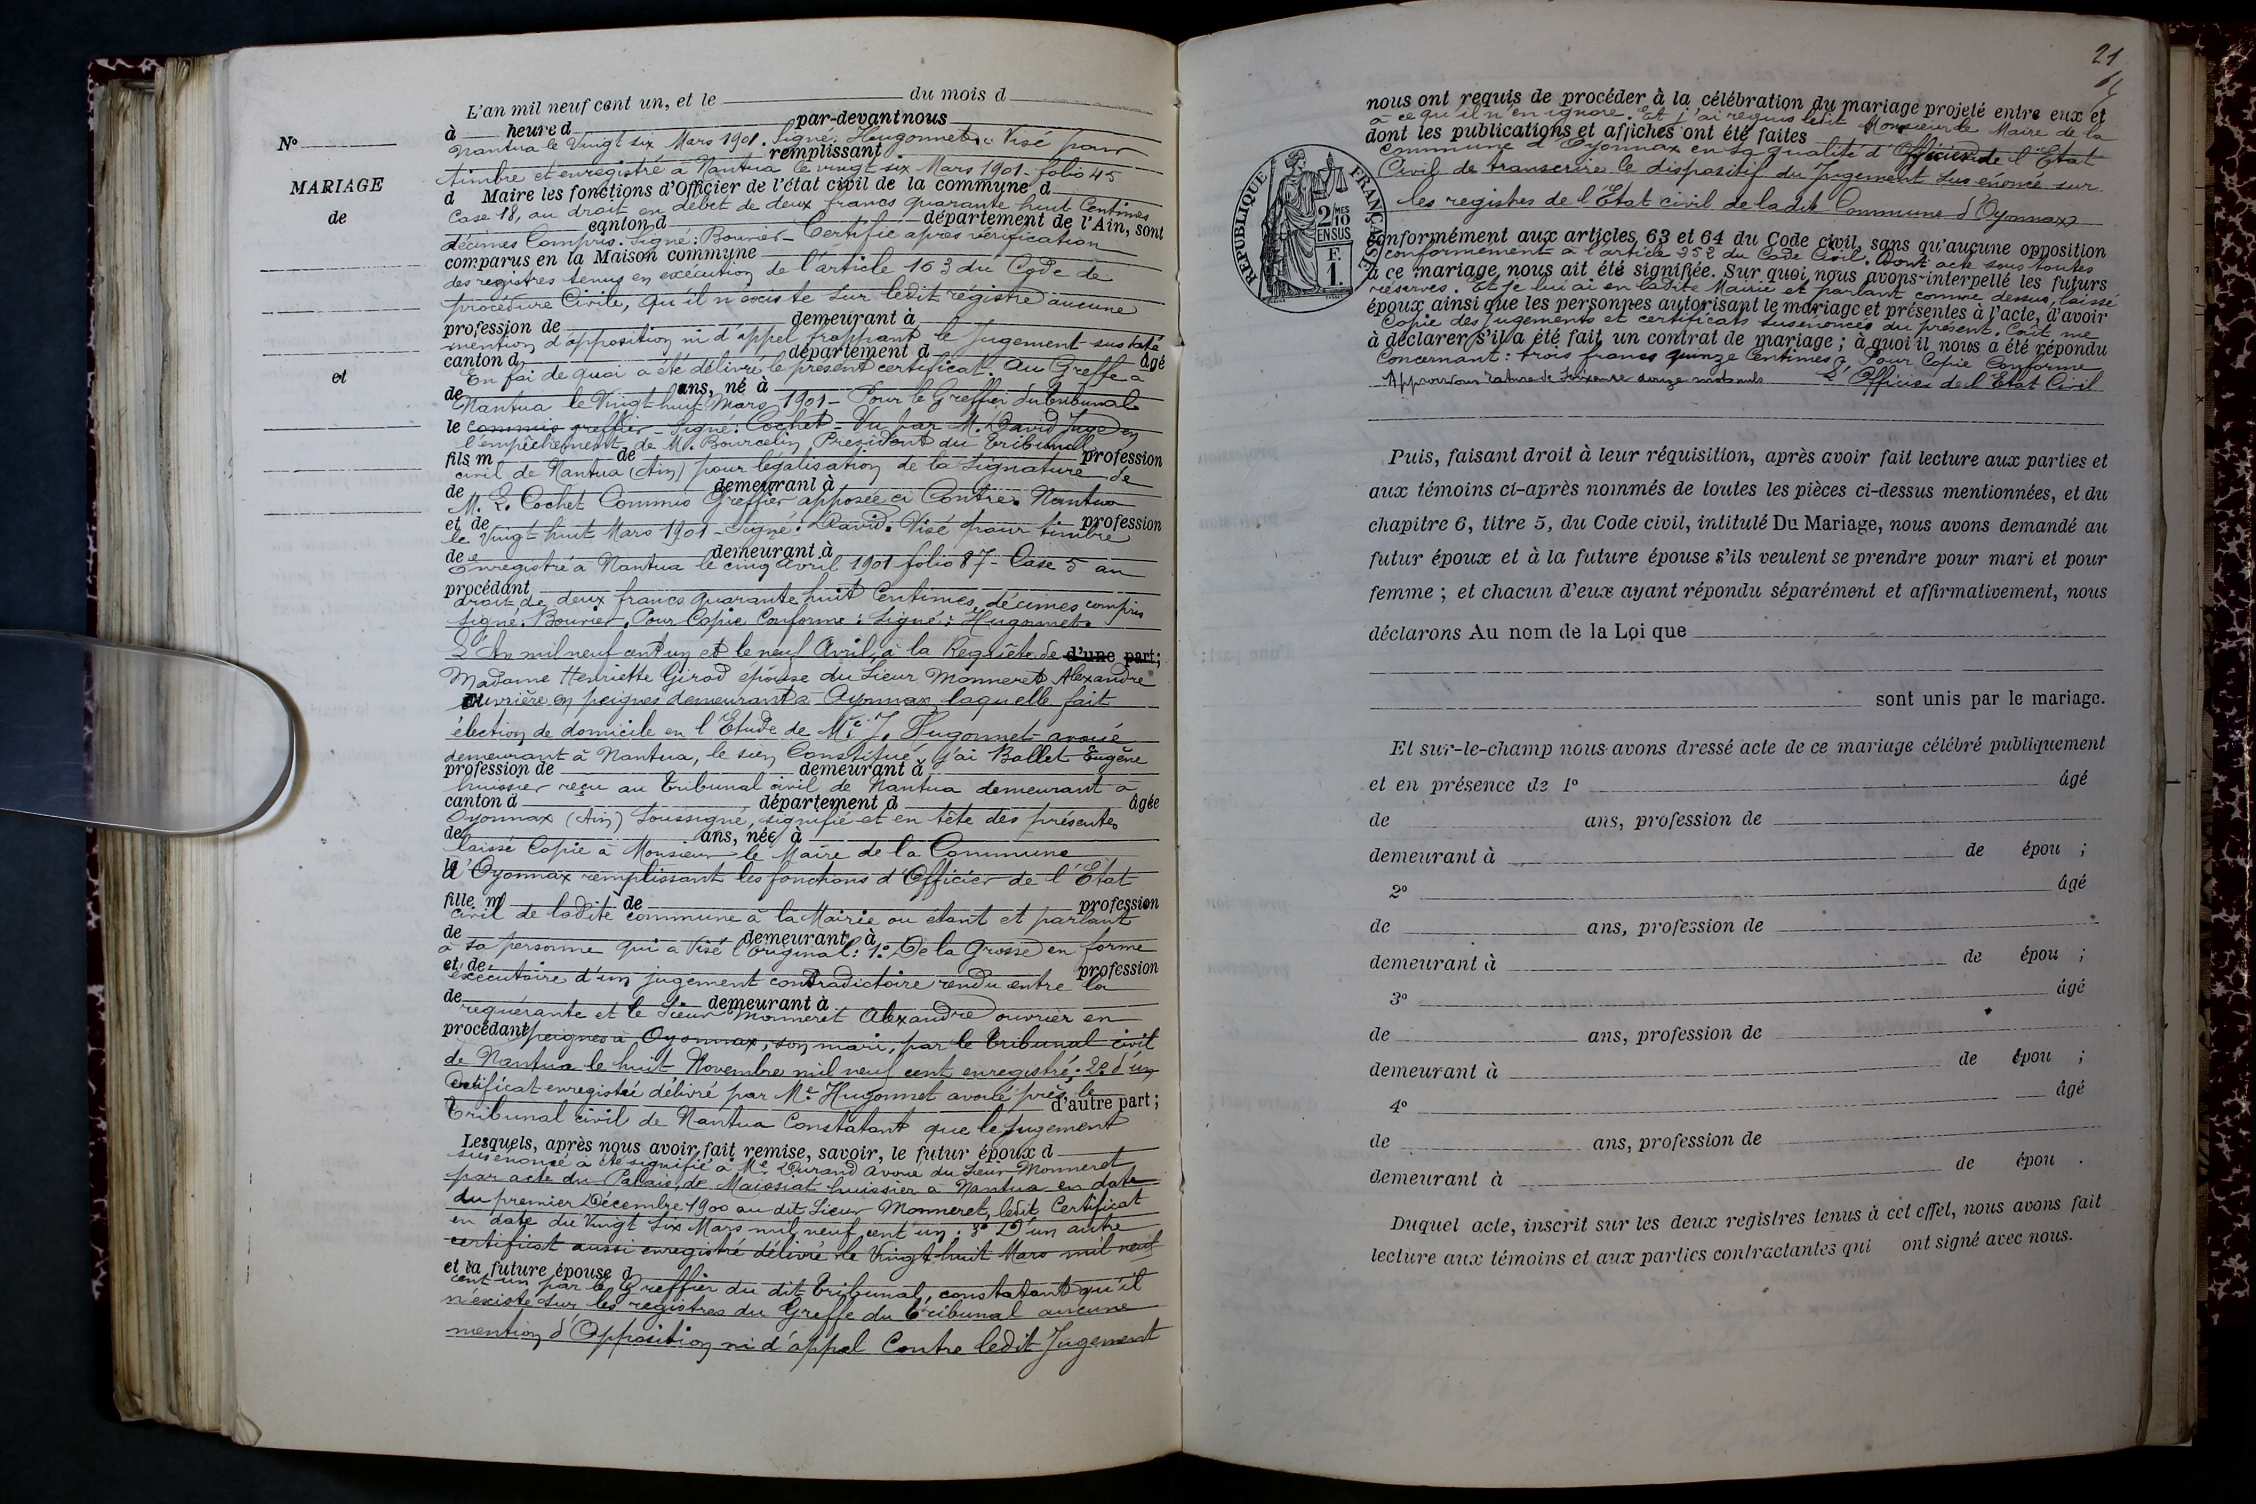 L'an mil neuf cent un, et le du mois d
à heure d par-devant nous
Nº
Nantua le Vingt six Mars 1901. Signé: Hugonnet. Visé pour
remplissant
timbre et enregistré à Nantua le vingt six Mars 1901 - folio 45
MARIAGE
d Maire les fonctions d'Officier de l'état civil de la commune d
Case 18, au droit en débet de deux francs quarante huit Centimes
de
canton d département de l'Ain, sont
décimes Compris. Signé: Bouvier - Certifie après vérification
comparus en la Maison commune
des registres tenus en exécution de l'article 163 du Code de
procédure Civile, qu'il n'existe sur ledit régistre aucune
profession de demeurant à
mention d'opposition ni d'appel frappant le Jugement sus daté
canton d département d âgé
et
En foi de quoi a été délivré le présent certificat. Au Greffe à
de ans, né à
Nantua le Vingt huit Mars 1901 - Pour le Greffier du tribunal
le commis greffier - Signé: Cochet - Vu par M. David Juge en
l'empêchement de M. Bourcelin Président du tribunal
fils m de profession
civil de Nantua (Ain) pour légalisation de la Signature de
de demeurant à
M. L. Cochet Commis Greffier apposée ci Contre. Nantua
et de profession
le Vingt huit Mars 1901 - Signé: David. Visé pour timbre
de demeurant à
Enregistré à Nantua le cinq Avril 1901 folio 87 - Case 5 au
procédant
droit de deux francs quarante huit Centimes, décimes compris
signé: Bouvier. Pour Copie Conforme: Signé: Hugonnet.
L'An mil neuf cent un et le neuf Avril, à la Requête de d'une part;
Madame Henriette Girod épouse du Sieur Monneret Alexandre
ouvrière en peignes demeurant à Oyonnax, laquelle fait
élection de domicile en l'Etude de Me J. Hugonnet avoué
demeurant à Nantua, le sien Constitué, j'ai Ballet Eugène
profession de demeurant à
huissier reçu au tribunal civil de Nantua demeurant à
canton d département d âgée
Oyonnax (Ain) Soussigné, signifié et en tête des présentes
de ans, née à
laissé Copie à Monsieur le Maire de la Commune
le
d'Oyonnax remplissant les fonctions d'Officier de l'État
fille m de profession
civil de ladite commune à la Mairie ou etant et parlant
de demeurant à
à sa personne qui a visé l'original: 1º De la Grosse en forme
et de profession
exécutoire d'un jugement contradictoire rendu entre la
de demeurant à
requérante et le Sieur Monneret Alexandre ouvrier en
procédant peignes à Oyonnax, son mari, par le tribunal civil
de Nantua le huit Novembre mil neuf cent enregistré; 2º d'un
Certificat enregistré délivré par Me Hugonnet avoué près le
d'autre part;
tribunal civil de Nantua Constatant que le jugement
Lesquels, après nous avoir fait remise, savoir, le futur époux d
susénoncé a été signifié à Me Durand Avoué du Sieur Monneret
par acte du Palais, de Maissiat huissier à Nantua en date
du premier Décembre 1900 au dit Sieur Monneret, ledit Certificat
en date du Vingt Six Mars mil neuf cent un; 3º D'un autre
certificat aussi enregistré délivré le Vingt huit Mars mil neuf
et la future épouse d
cent un par le Greffier du dit tribunal, constatant qu'il
n'existe sur les registres du Greffe du tribunal aucune
mention d'Opposition ni d'appel Contre ledit Jugement
21
nous ont requis de procéder à la célébration du mariage projeté entre eux et
à ce qu'il n'en ignore. Et j'ai requis ledit Monsieur le Maire de la
dont les publications et affiches ont été faites
Commune d'Oyonnax en sa qualité d'Officier de l'État
Civil de transcrire le dispositif du jugement sus énoncé sur
les registres de l'État civil de ladite Commune d'Oyonnax
RÉPUBLIQUE FRANÇAISE
2/10 MES
EN SUS
F.
1.
conformément aux articles 63 et 64 du Code civil, sans qu'aucune opposition
conformément à l'article 252 du Code Civil. Dont acte sous toutes
à ce mariage nous ait été signifiée. Sur quoi, nous avons interpellé les futurs
réserves. Et je lui ai en ladite Mairie et parlant comme dessus, laissé
époux ainsi que les personnes autorisant le mariage et présentes à l'acte, d'avoir
Copie des jugements et certificats susénoncés du présent. Coût me
à déclarer s'il a été fait un contrat de mariage; à quoi il nous a été répondu
Concernant: trois francs quinze Centimes. Pour Copie Conforme
Approuvons rature de Soixante douze mots nuls L'Officier de l'État Civil
Puis, faisant droit à leur réquisition, après avoir fait lecture aux parties et
aux témoins ci-après nommés de toutes les pièces ci-dessus mentionnées, et du
chapitre 6, titre 5, du Code civil, intitulé Du Mariage, nous avons demandé au
futur époux et à la future épouse s'ils veulent se prendre pour mari et pour
femme; et chacun d'eux ayant répondu séparément et affirmativement, nous
déclarons Au nom de la Loi que
sont unis par le mariage.
Et sur-le-champ nous avons dressé acte de ce mariage célébré publiquement
et en présence de 1º âgé
de ans, profession de
demeurant à de épou ;
2º âgé
de ans, profession de
demeurant à de épou ;
3º âgé
de ans, profession de
demeurant à de épou ;
4º âgé
de ans, profession de
demeurant à de épou .
Duquel acte, inscrit sur les deux registres tenus à cet effet, nous avons fait
lecture aux témoins et aux parties contractantes qui ont signé avec nous.